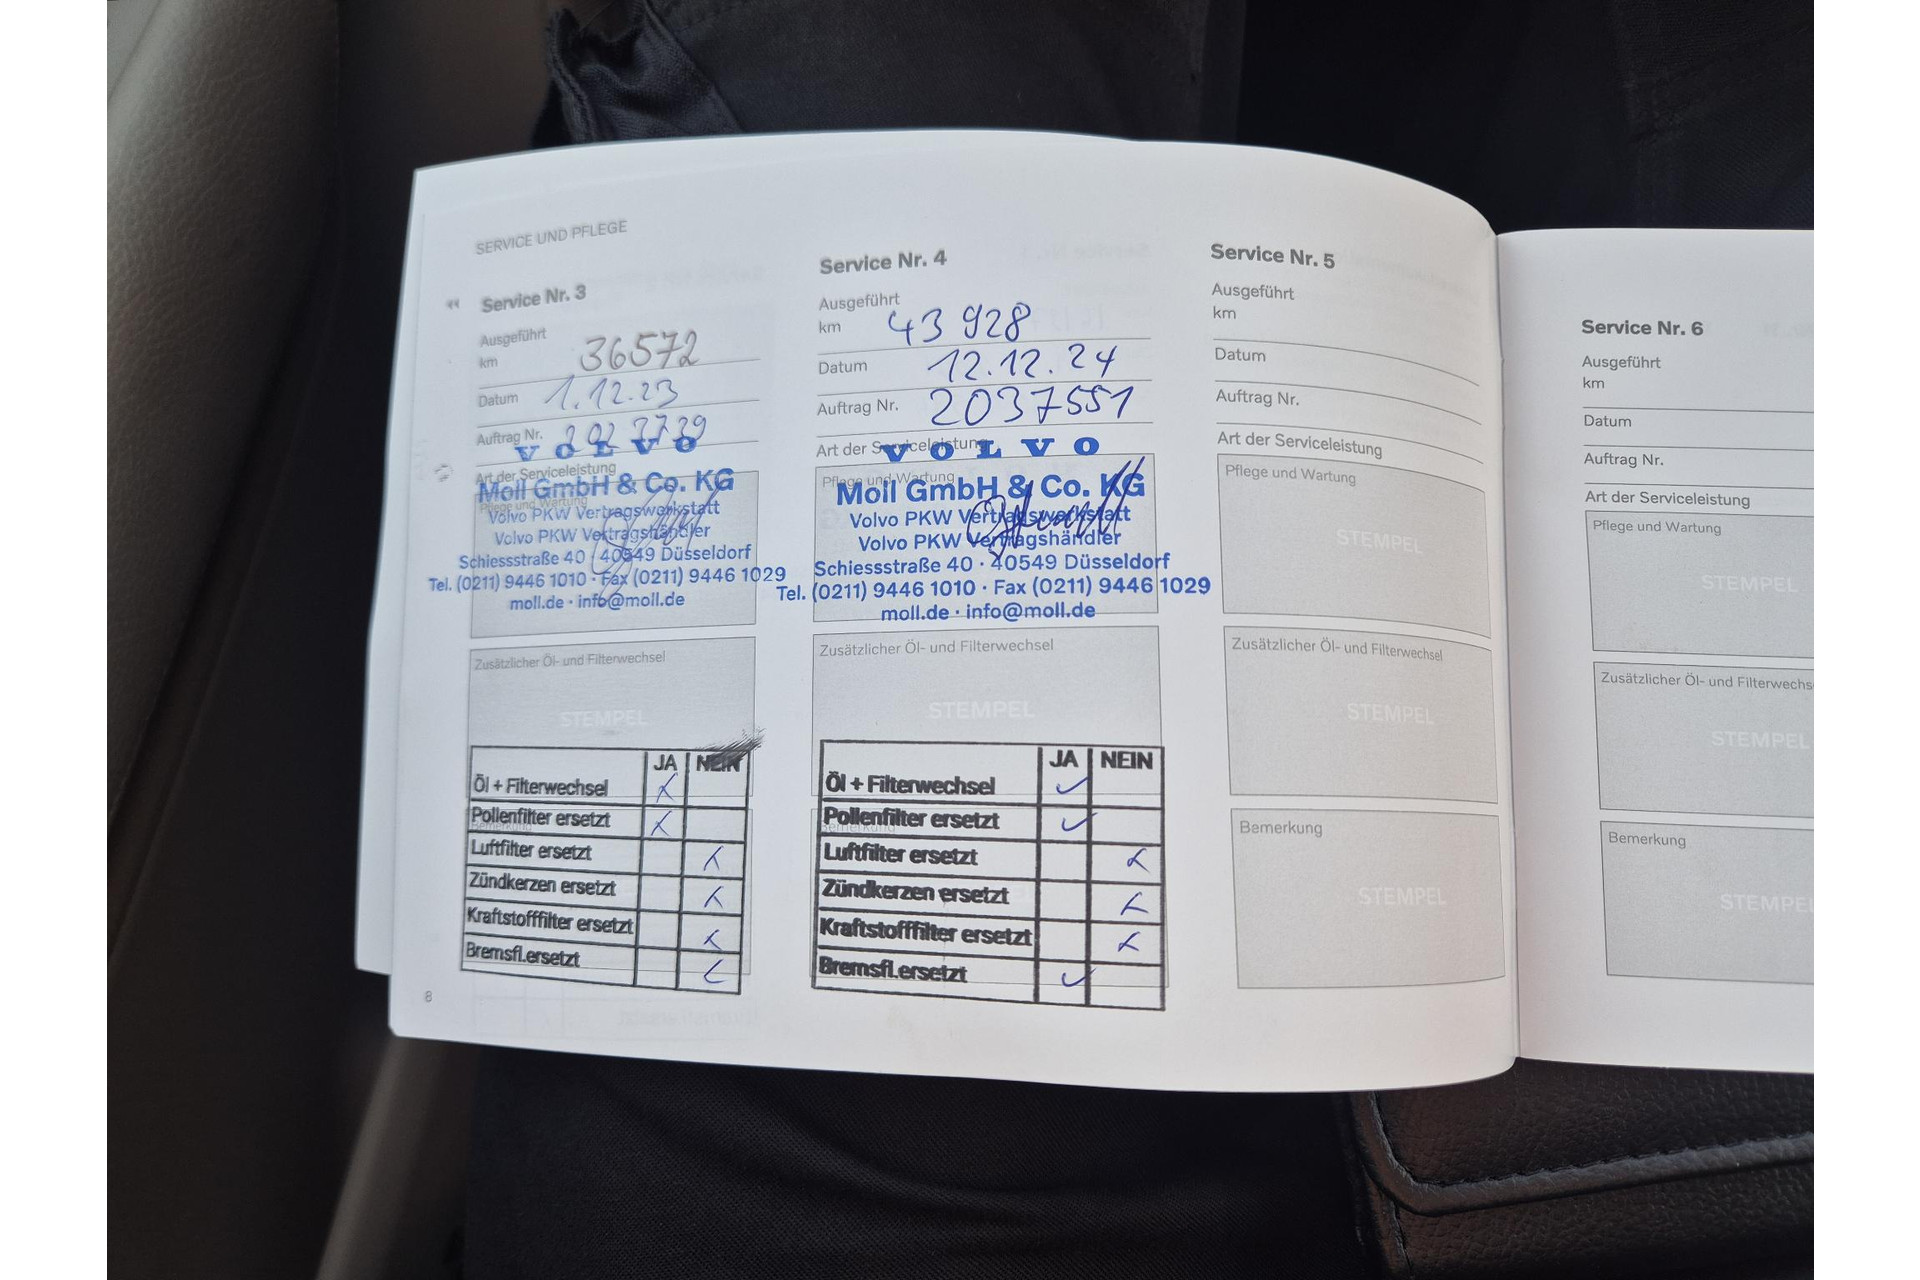 SERVICE UND PFLEGE
Service Nr. 3
Ausgeführt
km 36572
Datum 1.12.23
Auftrag Nr.
VOLVO
Art der Serviceleistung
Pflege und Wartung
Moll GmbH & Co. KG
Volvo PKW Vertragswerkstatt
Volvo PKW Vertragshändler
Schiessstraße 40 · 40549 Düsseldorf
Tel. (0211) 9446 1010 · Fax (0211) 9446 1029
moll.de · info@moll.de
Zusätzlicher Öl- und Filterwechsel
STEMPEL
JA NEIN
Öl + Filterwechsel X
Pollenfilter ersetzt X
Luftfilter ersetzt X
Zündkerzen ersetzt X
Kraftstofffilter ersetzt X
Bremsfl.ersetzt
Bemerkung
8
Service Nr. 4
Ausgeführt
km 43 928
Datum 12.12.24
Auftrag Nr. 2037551
Art der Serviceleistung
VOLVO
Pflege und Wartung
Moll GmbH & Co. KG
Volvo PKW Vertragswerkstatt
Volvo PKW Vertragshändler
Schiessstraße 40 · 40549 Düsseldorf
Tel. (0211) 9446 1010 · Fax (0211) 9446 1029
moll.de · info@moll.de
Zusätzlicher Öl- und Filterwechsel
STEMPEL
JA NEIN
Öl + Filterwechsel ✓
Pollenfilter ersetzt ✓
Bemerkung
Luftfilter ersetzt X
Zündkerzen ersetzt X
Kraftstofffilter ersetzt X
Bremsfl.ersetzt ✓
Service Nr. 5
Ausgeführt
km
Datum
Auftrag Nr.
Art der Serviceleistung
Pflege und Wartung
STEMPEL
Zusätzlicher Öl- und Filterwechsel
STEMPEL
Bemerkung
STEMPEL
Service Nr. 6
Ausgeführt
km
Datum
Auftrag Nr.
Art der Serviceleistung
Pflege und Wartung
STEMPEL
Zusätzlicher Öl- und Filterwechs
STEMPEL
Bemerkung
STEMPEL